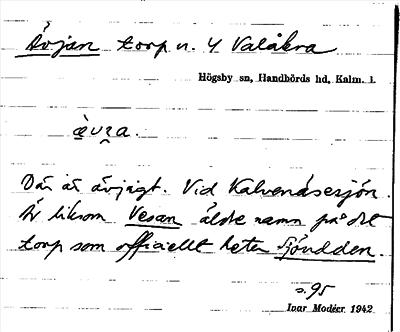 Ävjan torp u. 4 Valåkra
Högsby sn, Handbörds hd, Kalm. l.
ævɿa.
Där är ävjigt. Vid Kalvenäsesjön.
Är liksom Vesan äldre namn på det
torp som officiellt heter Sjöudden.
s. 95
Ivar Modéer 1942